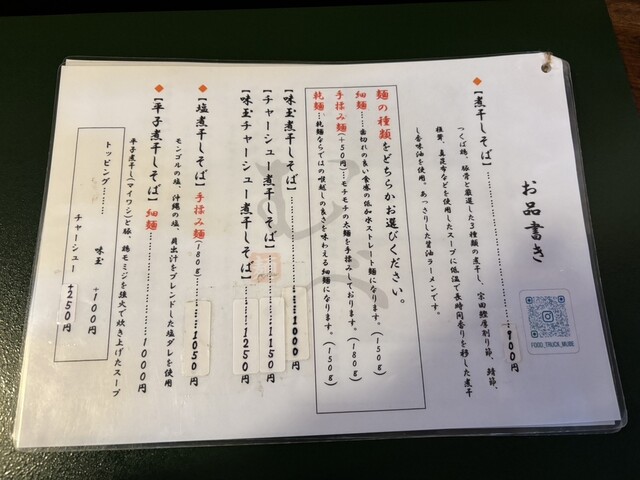 お品書き
FOOD_TRUCK_MUBE
◆【煮干しそば】…………………900円
つくば鶏、豚骨と厳選した3種類の煮干し、宗田鰹厚削り節、鯖節、
椎茸、真昆布などを使用したスープに低温で長時間香りを移した煮干
し香味油を使用。あっさりした醤油ラーメンです。
麺の種類をどちらかお選びください。
細麺……歯切れの良い食感の低加水ストレート麺になります。(150g)
手揉み麺(+50円)……モチモチの太麺を手揉みしております。(180g)
乾麺……乾麺ならではの喉越しの良さを味わえる細麺になります。(150g)
【味玉煮干しそば】…………1000円
【チャーシュー煮干しそば】…………1150円
【味玉チャーシュー煮干しそば】…………1250円
むべ
◆【塩煮干しそば】手揉み麺(180g)…………1050円
モンゴルの塩、沖縄の塩、貝出汁をブレンドした塩ダレを使用
◆【平子煮干しそば】細麺…………………1000円
平子煮干し(マイワシ)と豚、鶏モミジを強火で炊き上げたスープ
トッピング……味玉 +100円
チャーシュー +250円